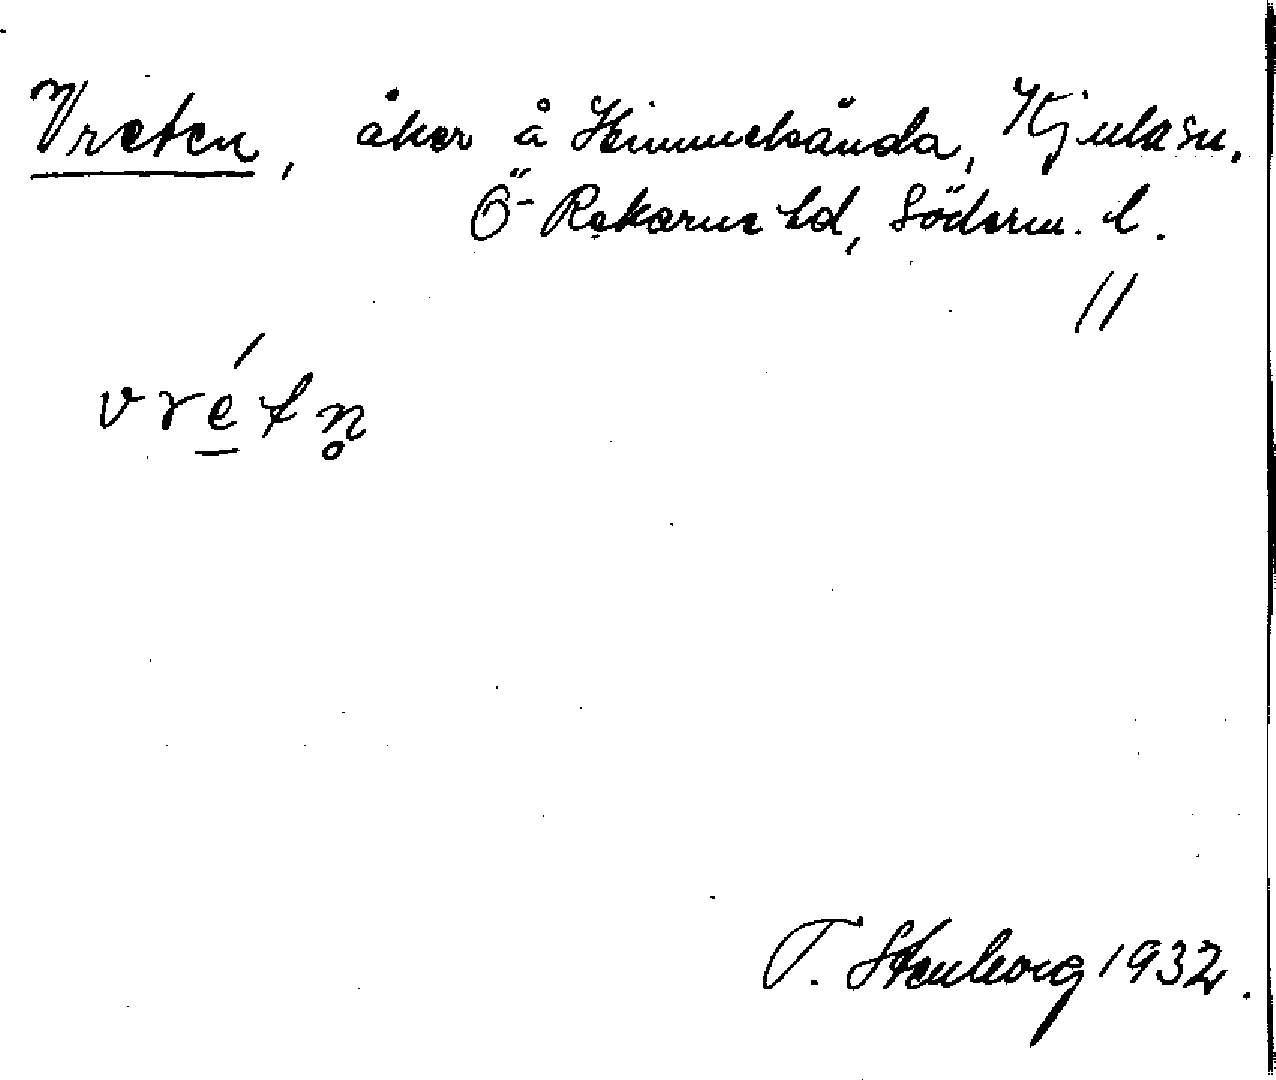 Vreten, åker å Himmelsända, Kjula sn.
Ö- Rekarne hd, Söderm. l.
//
vrétn̥
T. Stenborg 1932.